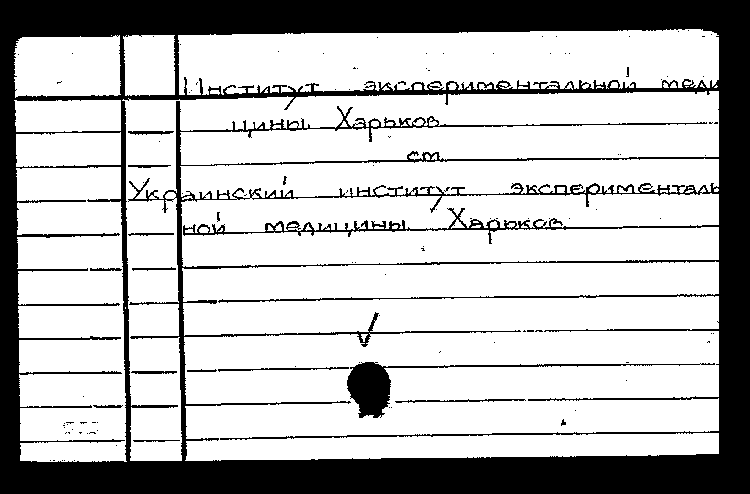 Институт экспериментальной меди
цины Харьков
см.
Украинский институт эксперименталь
ной медицины. Харьков.